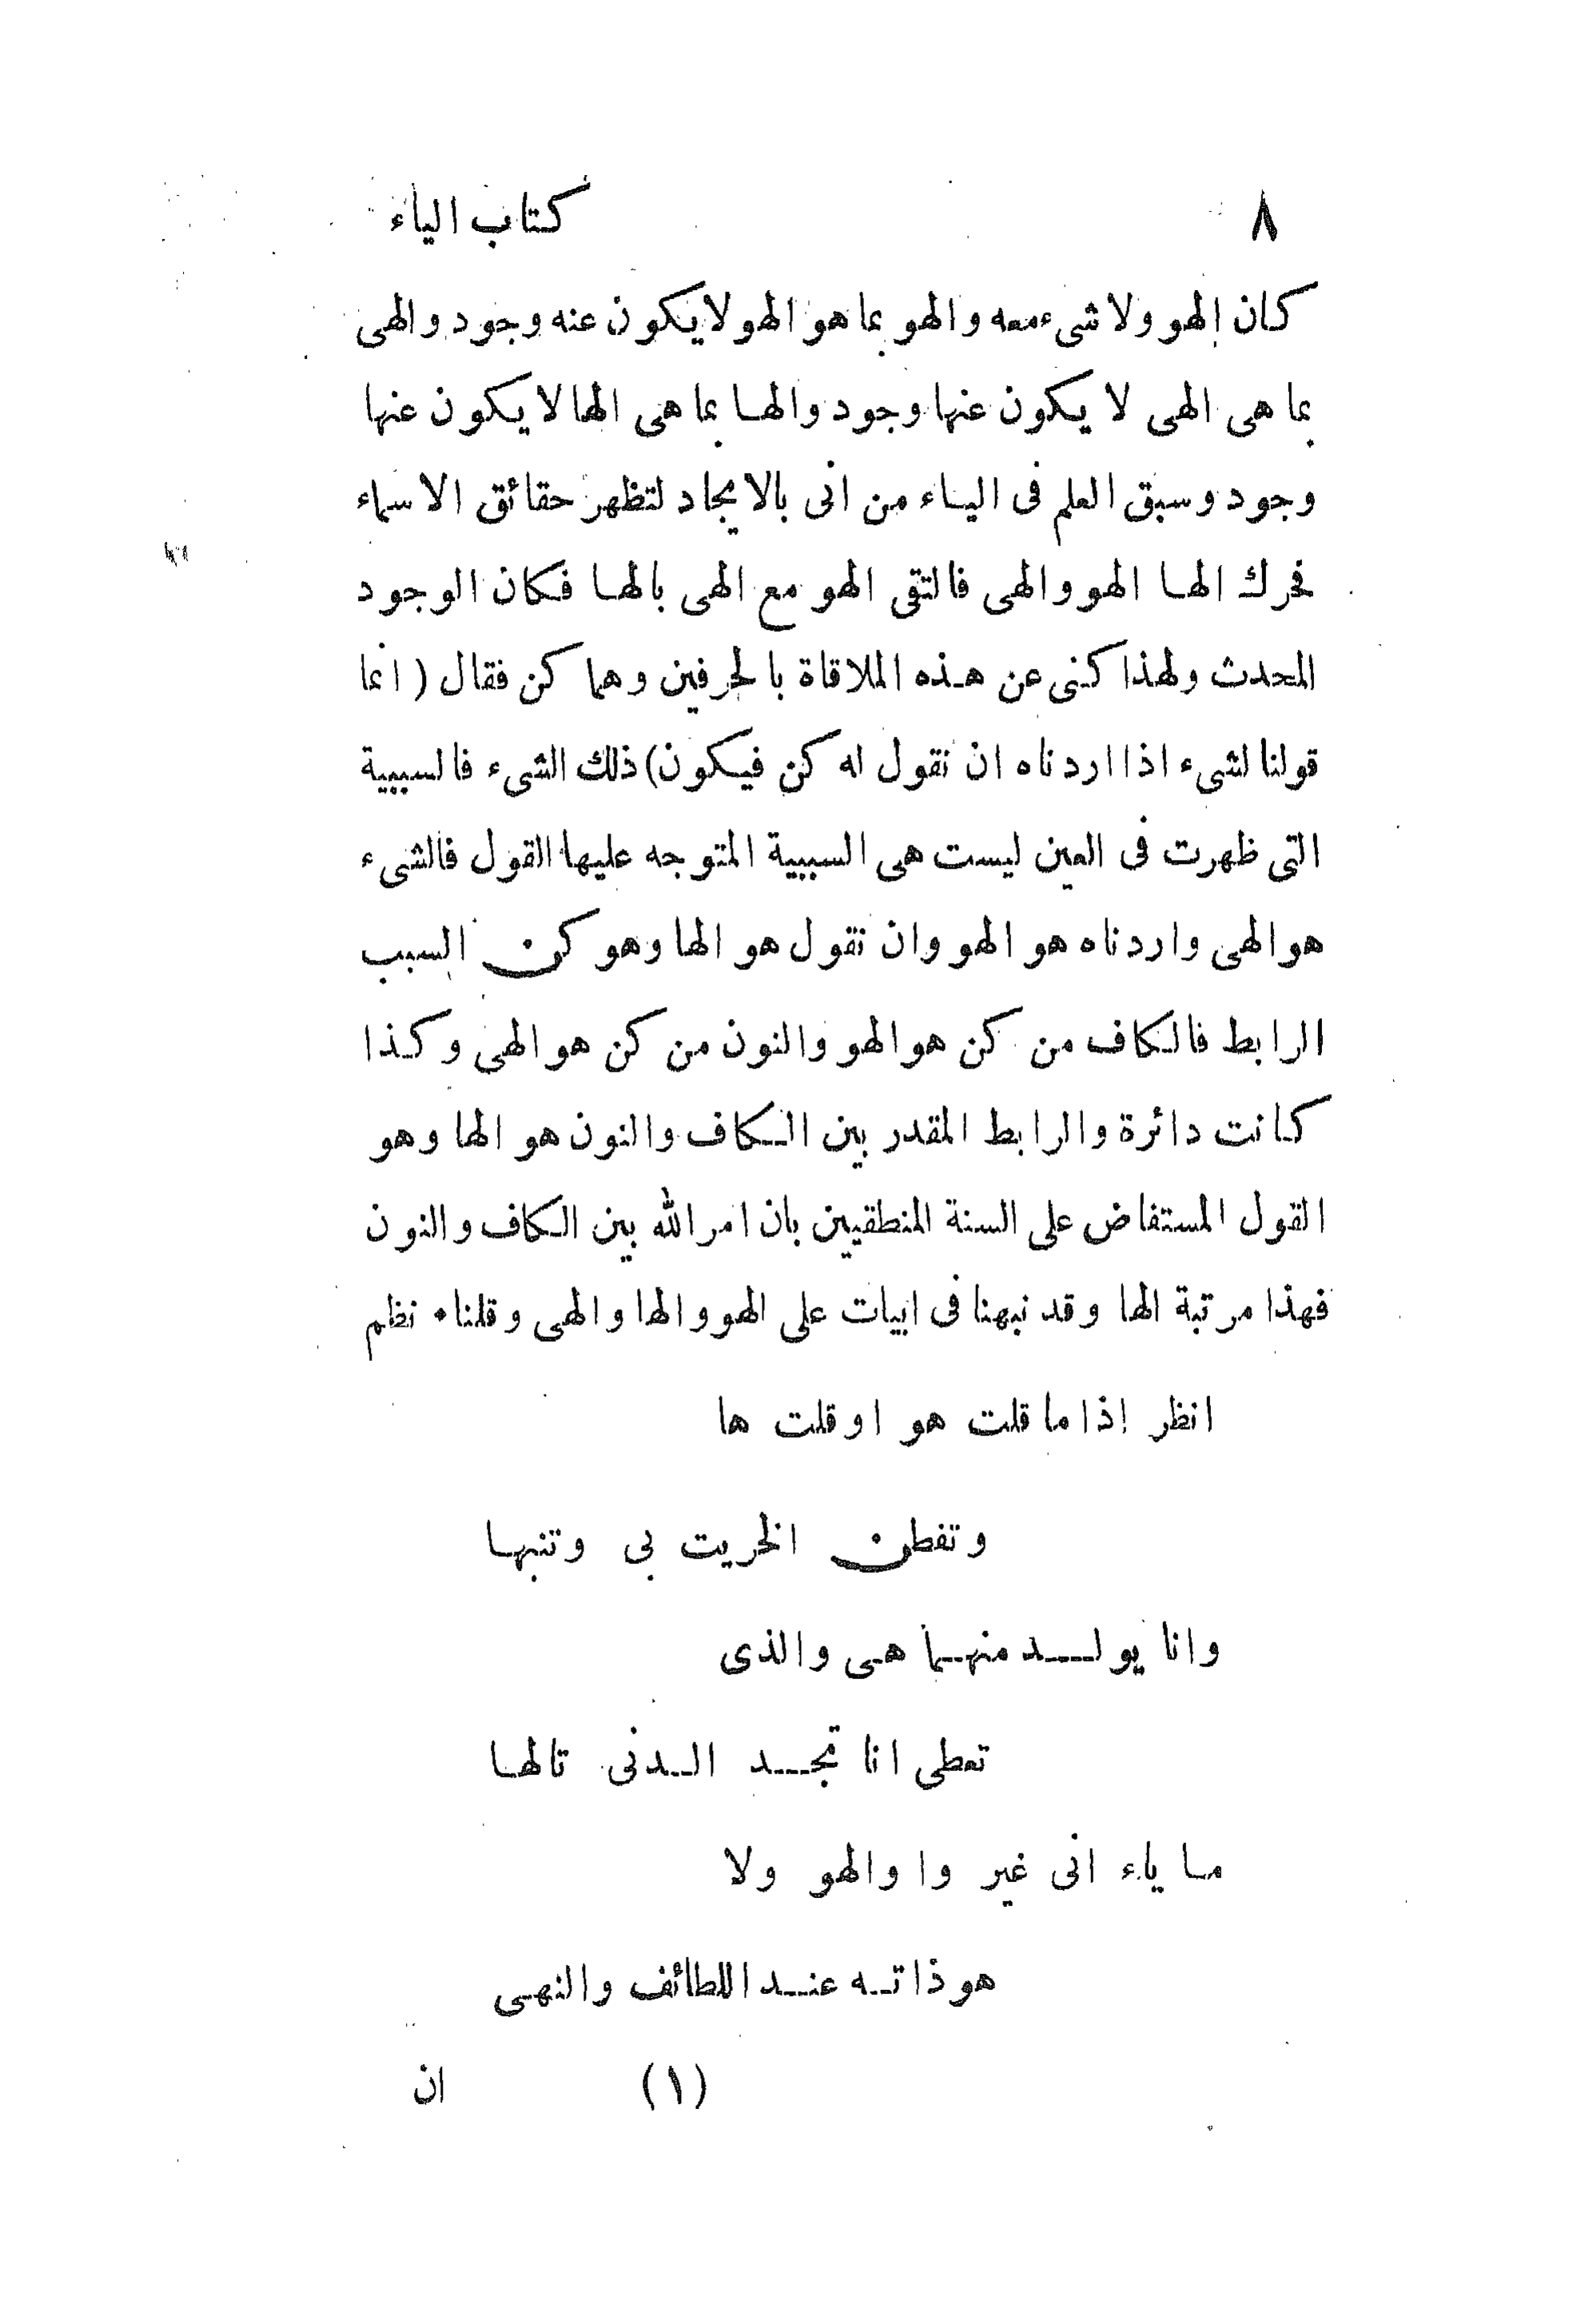 ٨ كتاب الياء
كان الهو ولا شىء معه والهو بما هو الهو لا يكون عنه وجود والهى
بما هى الهى لا يكون عنها وجود والهـا بما هى الها لا يكون عنها
وجود وسبق العلم فى اليـاء من انى بالايجاد لتظهر حقائق الاسماء
فحرك الهـا الهو والهى فالتقى الهو مع الهى بالهـا فكان الوجود
المحدث ولهذا كنى عن هـذه الملاقاة بالحرفين وهما كن فقال (انما
قولنا لشىء اذا اردناه ان نقول له كن فيكون) ذلك الشىء فالسببية
التى ظهرت فى العين ليست هى السببية المتوجه عليها القول فالشىء
هو الهى واردناه هو الهو وان نقول هو الها وهو كن السبب
الرابط فالكاف من كن هو الهو والنون من كن هو الهى وكذا
كانت دائرة والرابط المقدر بين الـكاف والنون هو الها وهو
القول المستفاض على السنة المنطقيين بان امر الله بين الكاف والنون
فهذا مرتبة الها وقد نبهنا فى ابيات على الهو والها والهى وقلنا ٠ نظم
انظر إذا ما قلت هو او قلت ها
وتفطن الخريت بى وتنبهـا
وانا يولـــد منهـما هـى والذى
تعطى انا تجـــد الـدنى تالهـا
مـا ياء انى غير وا والهو ولا
هو ذاتـه عنـد اللطائف والنهـى
(١) ان